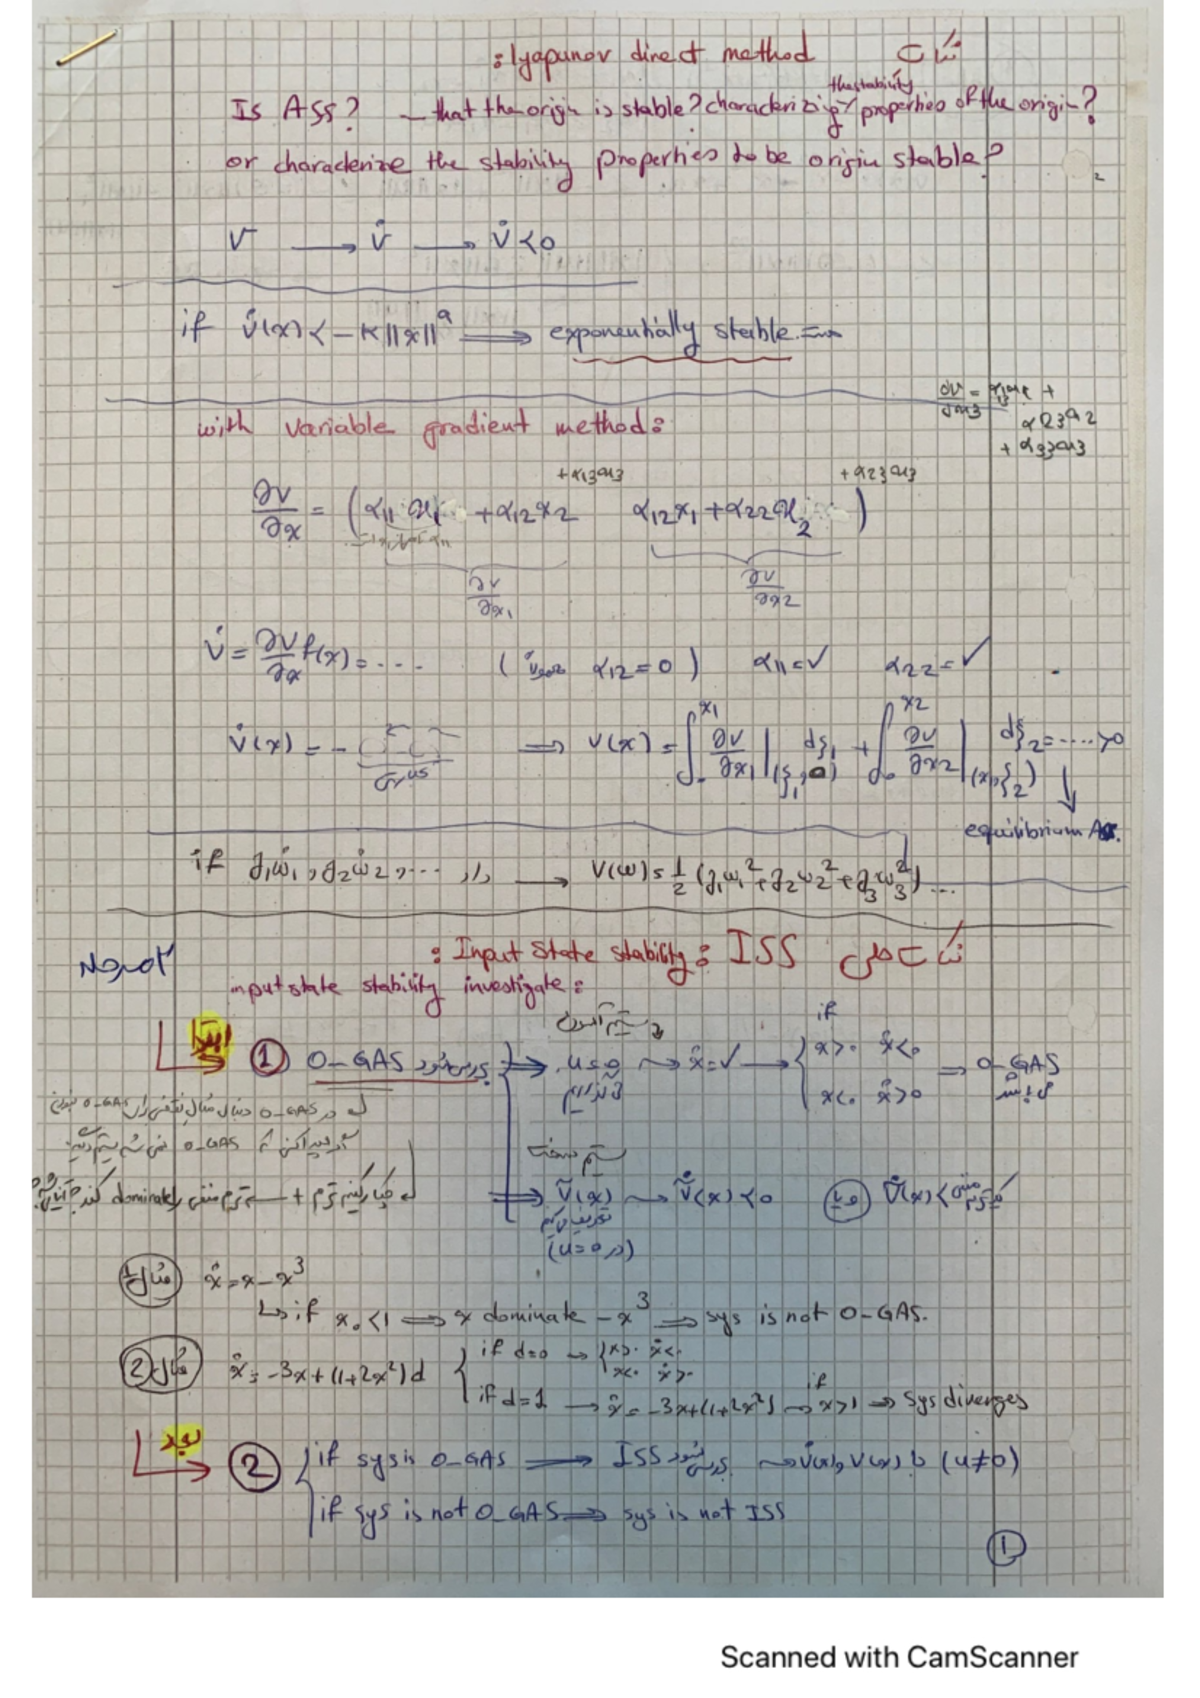 نکات Lyapunov direct method :
Is ASS? — that the origin is stable? characterizing the stability properties of the origin?
or characterize the stability properties to be origin stable?
V → V̇ → V̇ < 0
if V̇(x) < -K||x||^a ⟹ exponentially stable.
with variable gradient method:
∂V/∂x = (α11 x1 + α12 x2 + α13 x3    α12 x1 + α22 x2 + α23 x3)
∂V/∂x1    ∂V/∂x2
+ α23 x2
+ α33 x3
V̇ = ∂V/∂x f(x) = .... ( α12 = 0 ) α11 = ✓ α22 = ✓
V̇(x) = - ⟹ V(x) = ∫₀^x1 ∂V/∂x1 |(ξ1, 0) dξ1 + ∫₀^x2 ∂V/∂x2 |(x1, ξ2) dξ2 = .... > 0
equilibrium AS.
if J1ω̇1, J2ω̇2, ... → V(ω) = 1/2 (J1ω1² + J2ω2² + J3ω3²) ...
نکات ISS : Input State stability :
input state stability investigate :
if
ابتدا ① 0-GAS بررسی شود ⟹ u = 0 ⇝ ẋ = ✓ → { x > 0 ẋ < 0 ⟹ 0-GAS
x < 0 ẋ > 0
سیستم سخت
⟹ Ṽ(x) ⇝ Ṽ̇(x) < 0 و یا V̇(x) <
تعریف می‌کنیم
(در u = 0)
مثال 1 ẋ = x - x³
↳ if x₀ < 1 ⟹ x dominate - x³ ⟹ sys is not 0-GAS.
مثال 2 ẋ = -3x + (1+2x²)d { if d=0 → { x>0 ẋ<0
x<0 ẋ>0
if d=1 → ẋ = -3x + (1+2x²) → if x>1 ⟹ Sys diverges
بعد ② { if sys is 0-GAS ⟹ ISS بررسی شود ⇝ V̇(x), V(x) با (u≠0)
if sys is not 0-GAS ⟹ sys is not ISS
①
Scanned with CamScanner